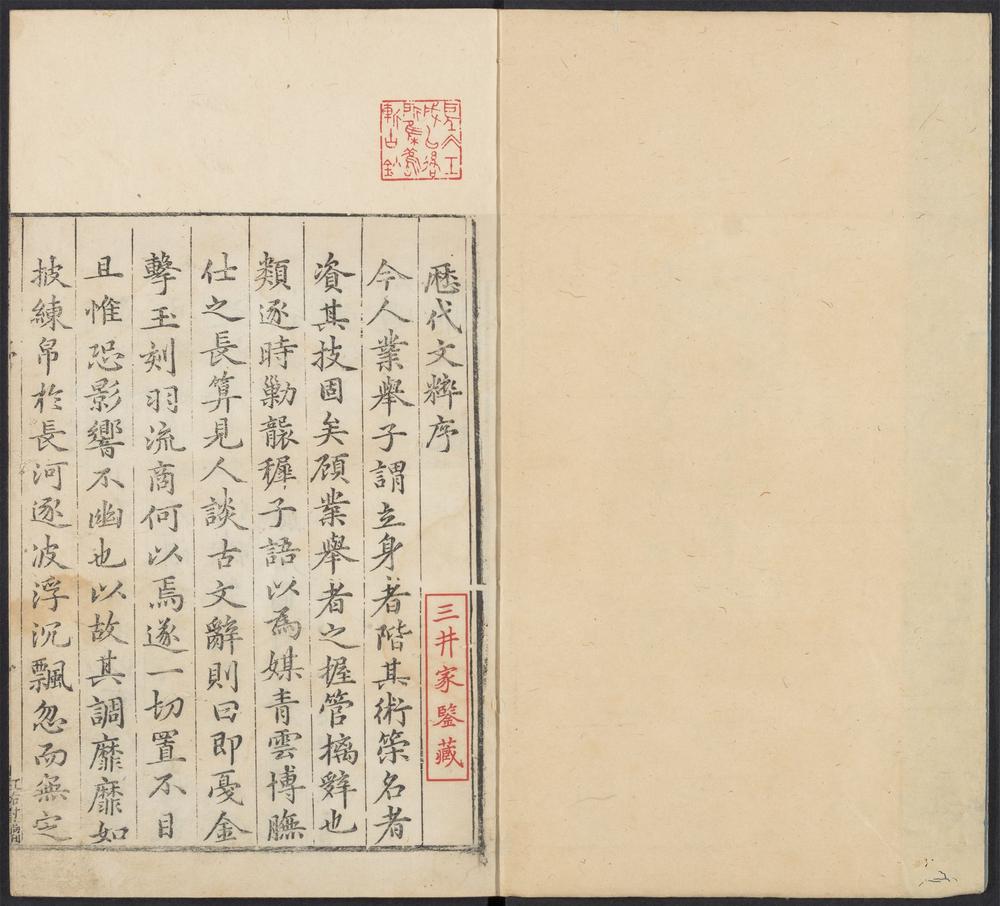 歷代文粹序
今人業舉子謂立身者階其術築名者
資其技固矣顧業舉者之握管摛辭也
類逐時勦襲穉子語以為媒青雲博膴
仕之長算見人談古文辭則曰即憂金
擊玉刻羽流商何以焉遂一切置不目
且惟恐影響不幽也以故其調靡靡如
披練帛於長河逐波浮沉飄忽而無定
三井家鑒藏